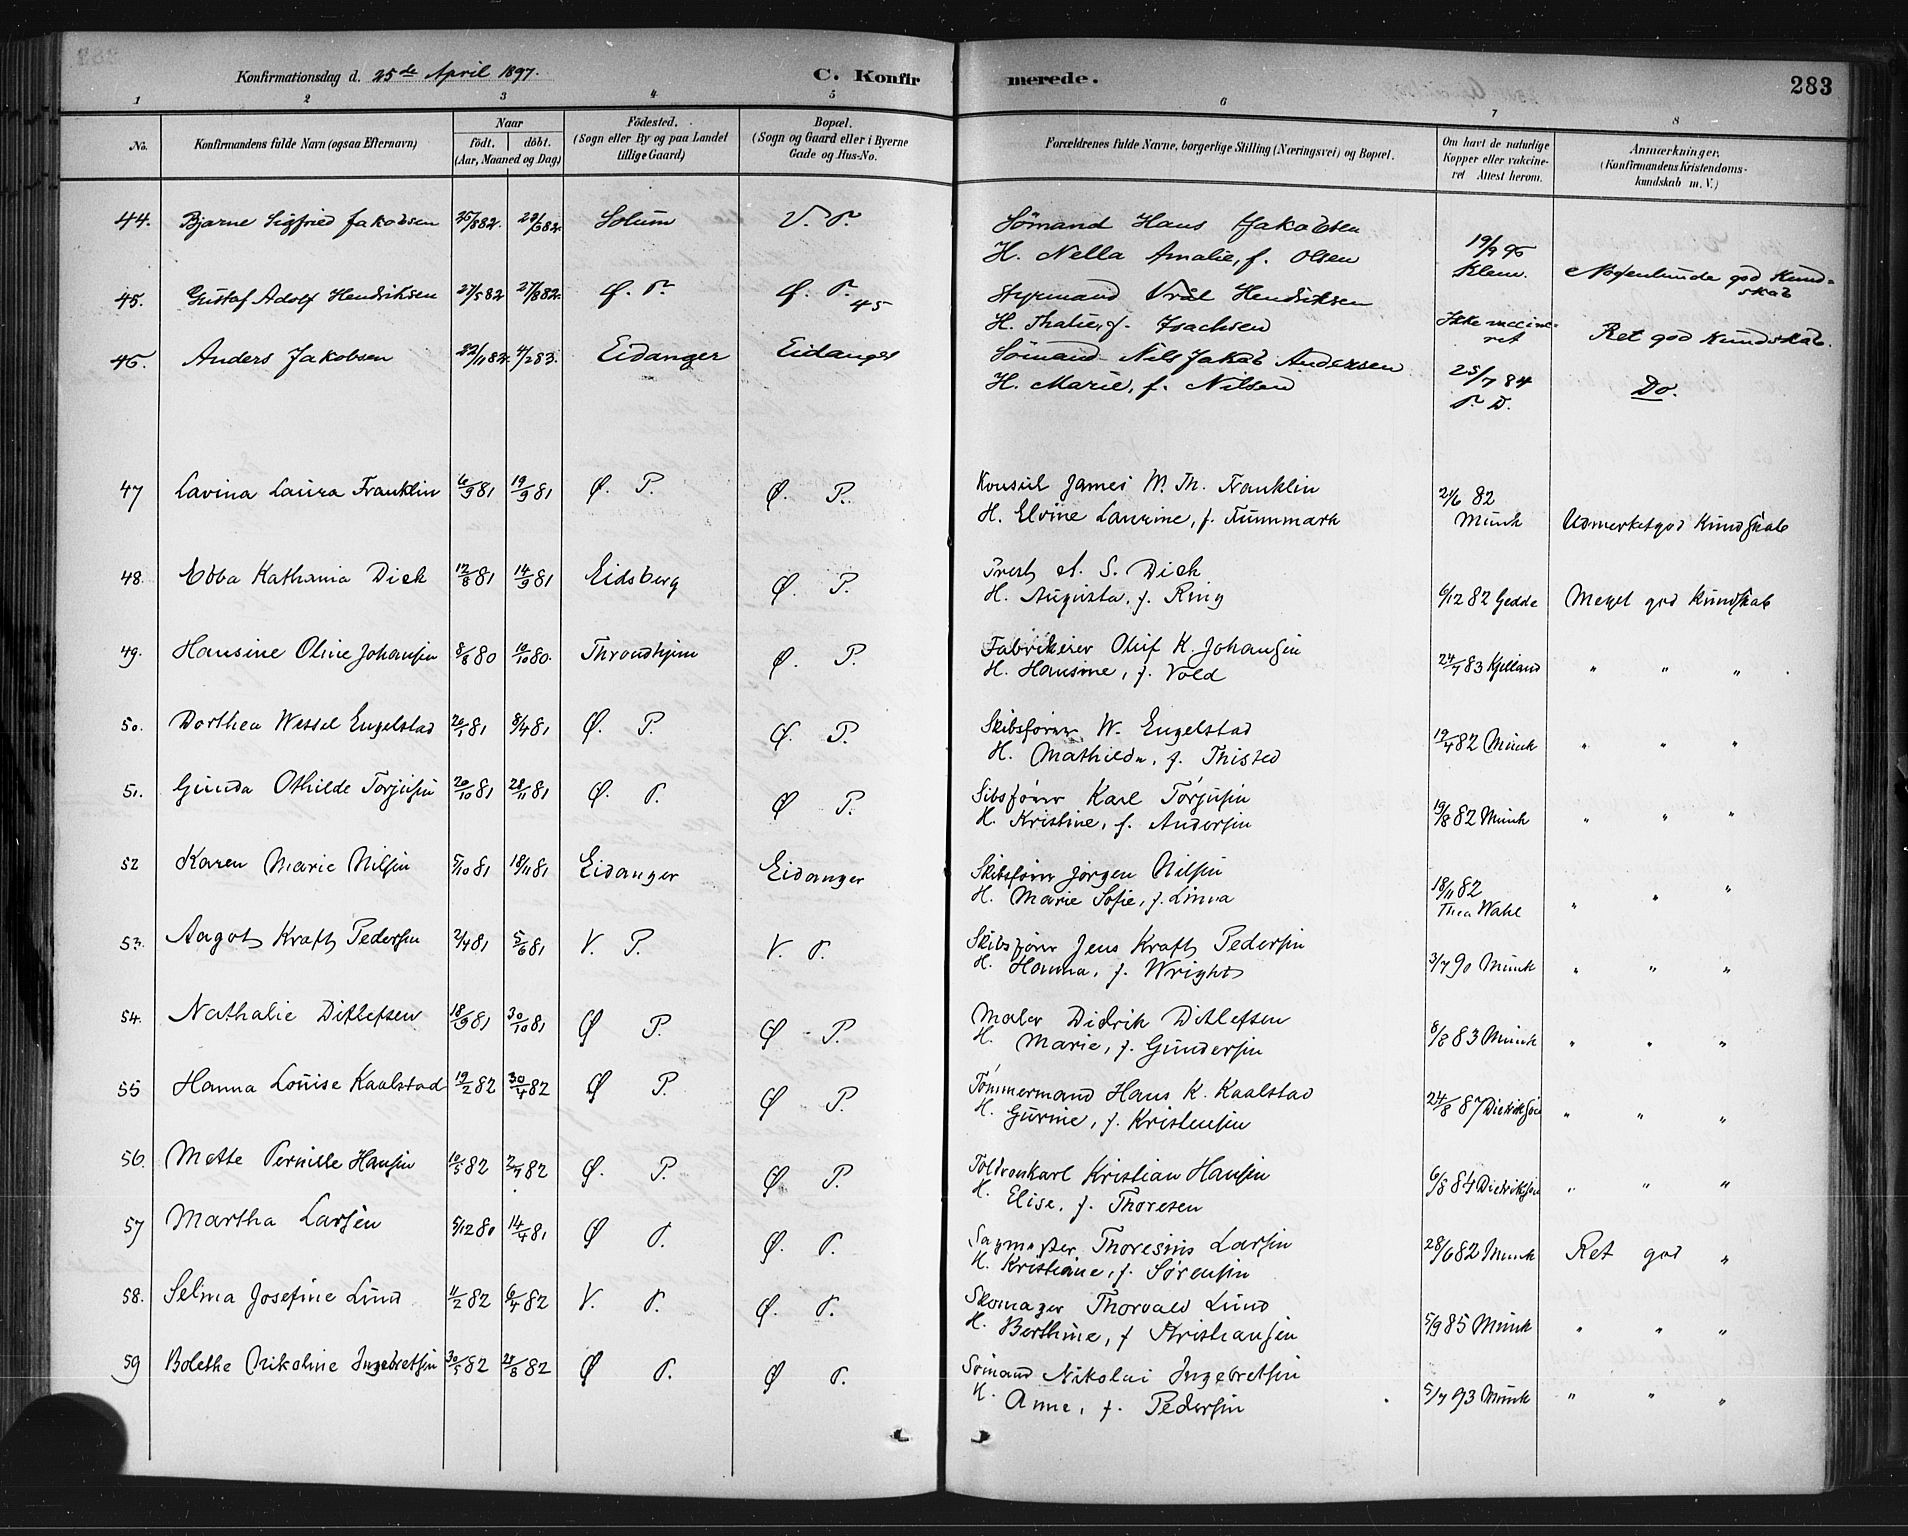 Konfirmationsdag d. 25de April 1897. C. Konfir merede. 283
1 2 3 4 5 6 7 8
No. Konfirmandens fulde Navn (ogsaa Efternavn) Naar født. døbt. (Aar, Maaned og Dag) Födested. (Sogn eller By og paa Landet tillige Gaard) Bopæl. (Sogn og Gaard eller i Byerne Gade og Hus-No. Forældrenes fulde Navne, borgerlige Stilling (Næringsvei) og Bopæl. Om havt de naturlige Kopper eller vakcineret Attest herom. Anmærkninger. (Konfirmandens Kristendomskundskab m. V.)
44. Bjarne Sigfried Jakobsen Solum V. P. Sömand Hans Jakobsen 19/9 95
H. Nella Amalie, f. Olsen Klem. Nogenlunde god Kundskab
45. Gustaf Adolf Hendriksen 27/5 82 27/8 82. Ø. P. Ø. P. 45 Styrmand Vrål Hendriksen
H. Thalie, f. Isachsen Ikke vaccineret Ret god Kundskab.
46. Anders Jakobsen 22/11 82. 4/2 83. Eidanger Eidanger Sömand Nils Jakob Andersen
H. Marie, f. Nilsen 25/7 84 P. D. Do.
47 Lavina Laura Franklin 6/9 81 19/9 81 Ø. P. Ø. P. Konsul James W. Th. Franklin
H. Elvine Laurine, f. 21/6 82 Münk Udmerket god Kundskab
48. Ebba Kathrina Dick 12/8 81 14/9 81 Eidsberg Ø. P. Prest A. S. Dick
H. Augusta, f. Ring 6/12 82 Gedde Meget god Kundskab
49. Hansine Oline Johansen 8/8 80 10/10 80. Throndhjem Ø. P. Fabrikeier Oluf K. Johansen
H. Hansine, f. Vold 24/7 83 Kjelland " " "
50. Dorthea Wessel Engelstad 26/1 81 8/4 81 Ø. P. Ø. P. Skibsfører W. Engelstad
H. Mathilda, f. Thisted 19/4 82 Münk " " "
51. Gunda Othilde Torjusen 20/10 81 28/11 81 Ø. P. Ø P. Sibsfører Karl Torjusen
H. Kristine, f. Andersen 19/8 82 Münk " " "
52 Karen Marie Nilsen 5/10 81 18/11 81 Eidanger Eidanger Skibsfører Jørgen Nilsen
H. Marie Sofie, f. Linna 18/11 82 Thea Wahl " " "
53. Aagot Kraft Pedersen 2/4 81 5/6 81 V. P. V. P. Skibsfører Jens Kraft Pedersen
H. Hanna, f. Wright 3/7 90 Münk " " "
54. Nathalie Ditlefsen 18/9 81 30/10 81 Ø P. Ø P. Maler Didrik Ditlefsen
H. Marie, f. Gundersen 8/8 83 Münk " " "
55 Hanna Louise Kaalstad 19/2 82 30/4 82 Ø P. Ø P. Tømmermand Hans K. Kaalstad
H. Gurine, f. Kristensen 24/8 87 Diedriksen " " "
56. Mette Pernille Hansen 10/5 82 2/7 82 Ø. P. Ø P. Toldroerkarl Kristian Hansen
H. Elise, f. Thoresen 6/8 84 Diedriksen " " "
57 Martha Larsen 5/12 80 14/4 81 Ø P. Ø. P. Sagmester Thoresius Larsen
H. Kristiane, f. Sørensen 28/6 82 Münk Ret god "
58. Selma Josefine Lund 11/2 82 6/4 82 V. P. Ø. P. Skomager Thorvald Lund
H. Berthine, f Kristiansen 5/9 85 Münk " " "
59 Bolethe Nikoline Ingebretsen 30/5 82 28/8 82 Ø P. Ø P. Sömand Nikolai Ingebretsen
H. Anne, f. Pedersen 5/7 93 Münk " " "